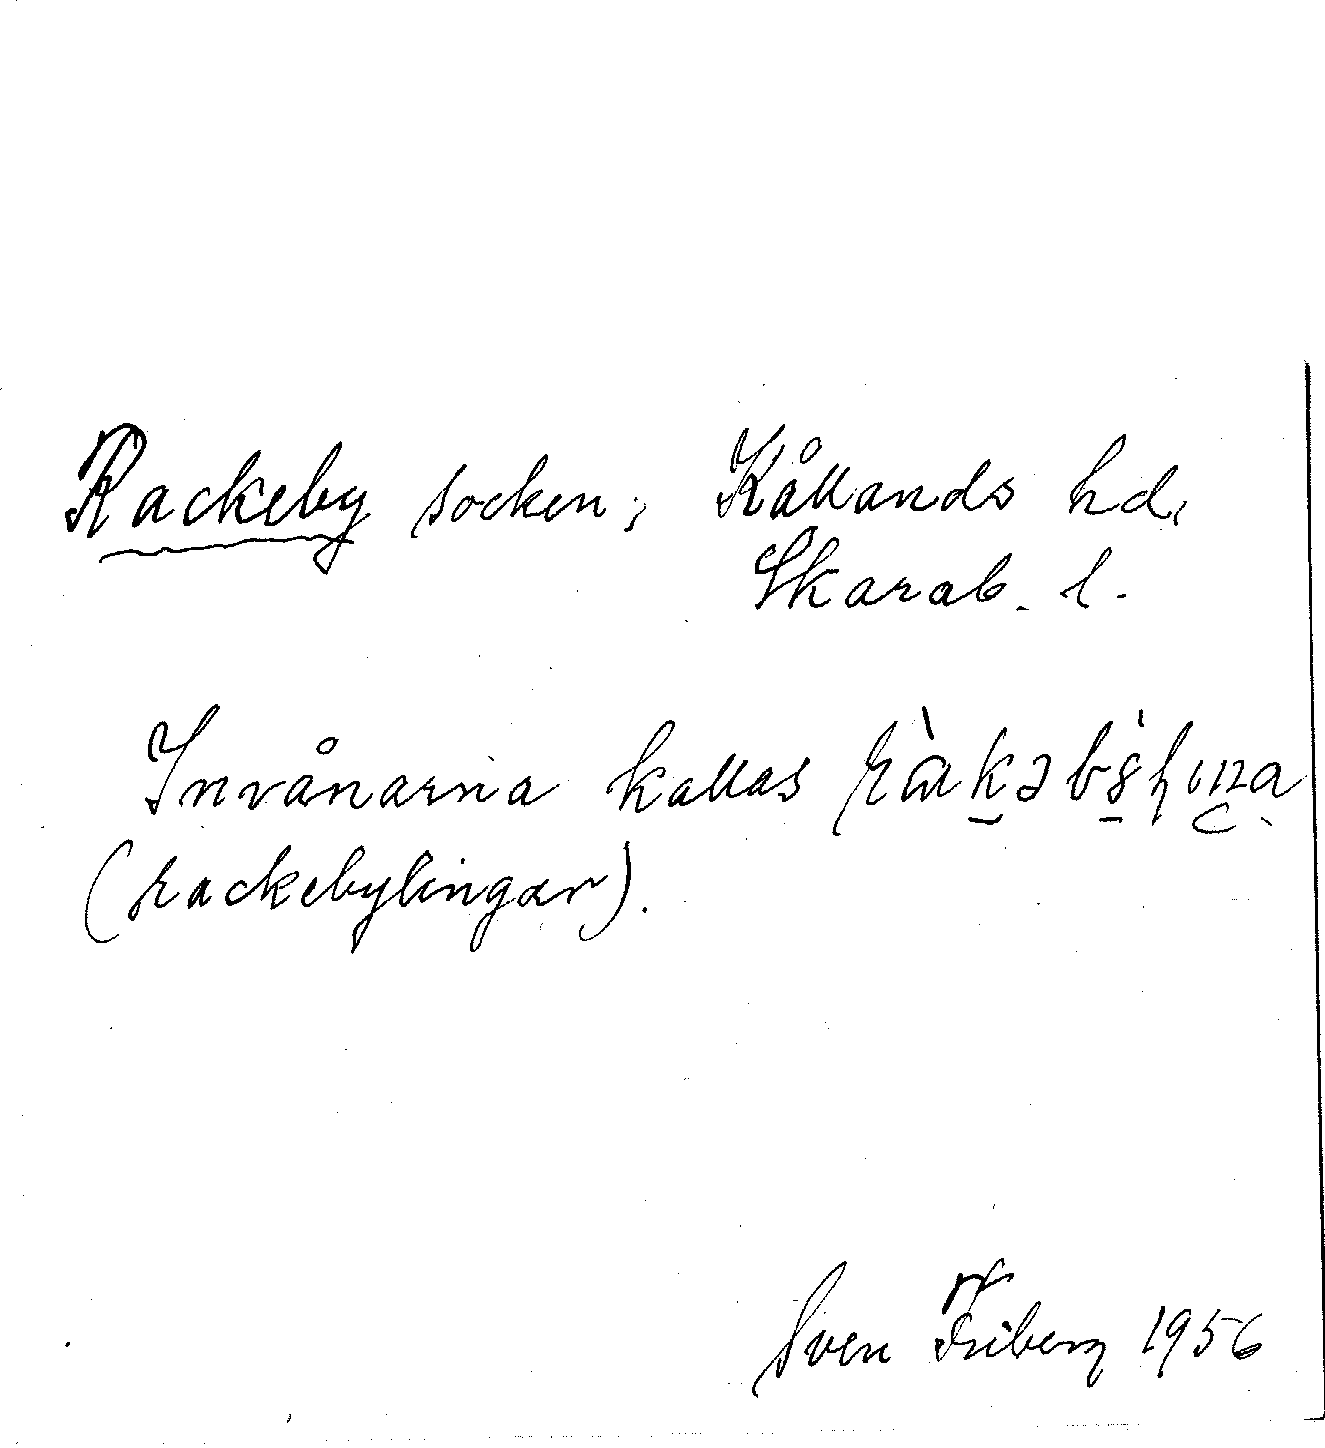 Rackeby socken, Kållands hd,
Skarab. l.
Invånarna kallas
(rackebylingar).
Sven Friberg 1956